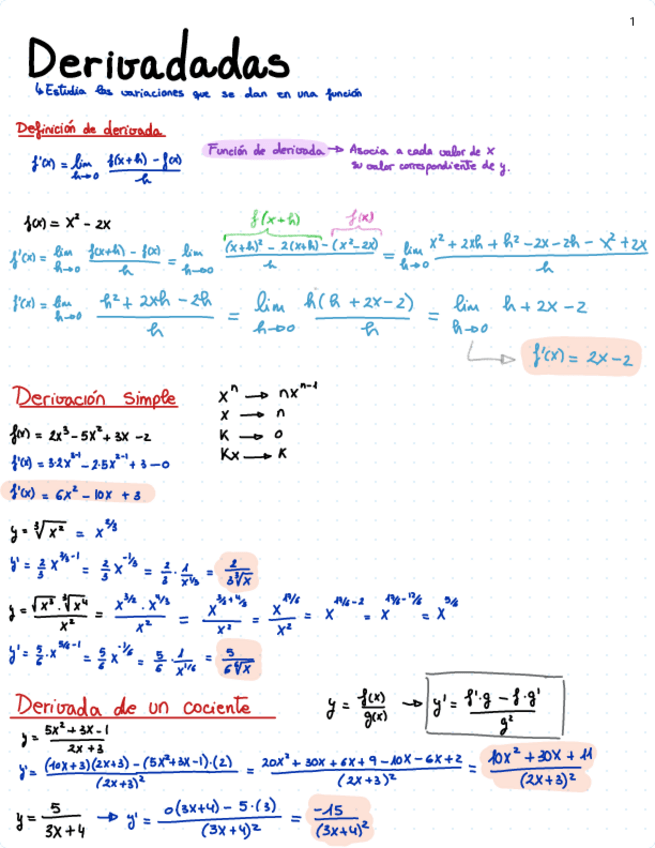 1
Derivadadas
↳ Estudia las variaciones que se dan en una función
Definición de derivada
f'(x) = lim h→0 (f(x+h) - f(x))/h
Función de derivada → Asocia a cada valor de x
su valor correspondiente de y.
f(x) = x² - 2x
f(x+h) f(x)
f'(x) = lim h→0 (f(x+h) - f(x))/h = lim h→0 ((x+h)² - 2(x+h) - (x² - 2x))/h = lim h→0 (x² + 2xh + h² - 2x - 2h - x² + 2x)/h
f'(x) = lim h→0 (h² + 2xh - 2h)/h = lim h→0 (h(h + 2x - 2))/h = lim h→0 h + 2x - 2
→ f'(x) = 2x - 2
Derivación simple
xⁿ → nxⁿ⁻¹
x → n
K → 0
Kx → K
f(x) = 2x³ - 5x² + 3x - 2
f'(x) = 3·2x³⁻¹ - 2·5x²⁻¹ + 3 - 0
f'(x) = 6x² - 10x + 3
y = ∛x² = x^(2/3)
y' = 2/3 x^(2/3-1) = 2/3 x^(-1/3) = 2/3 · 1/x^(1/3) = 2/(3∛x)
y = (√x³ · ∛x⁴)/x² = (x^(3/2) · x^(4/3))/x² = x^(3/2+4/3)/x² = x^(17/6)/x² = x^(17/6-2) = x^(17/6-12/6) = x^(5/6)
y' = 5/6 · x^(5/6-1) = 5/6 x^(-1/6) = 5/6 · 1/x^(1/6) = 5/(6 ⁶√x)
Derivada de un cociente
y = f(x)/g(x) → y' = (f'·g - f·g')/g²
y = (5x² + 3x - 1)/(2x + 3)
y' = ((10x+3)(2x+3) - (5x²+3x-1)·(2))/(2x+3)² = (20x² + 30x + 6x + 9 - 10x - 6x + 2)/(2x+3)² = (10x² + 30x + 11)/(2x+3)²
y = 5/(3x+4) → y' = (0(3x+4) - 5·(3))/(3x+4)² = -15/(3x+4)²